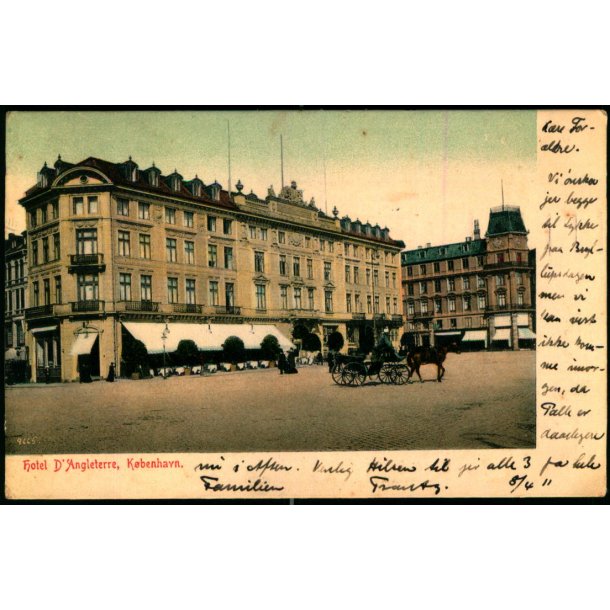 Kære For-
ældre.
Vi ønsker
jer begge
til lykke
paa Bryl-
lupsdagen
men vi
kan vist
ikke kom-
me imor-
gen, da
Palle er
daarligere
9665
Hotel D'Angleterre, København.
nu i Aften. Venlig Hilsen til jer alle 3 fra hele
Familien Frantz. 8/4 11